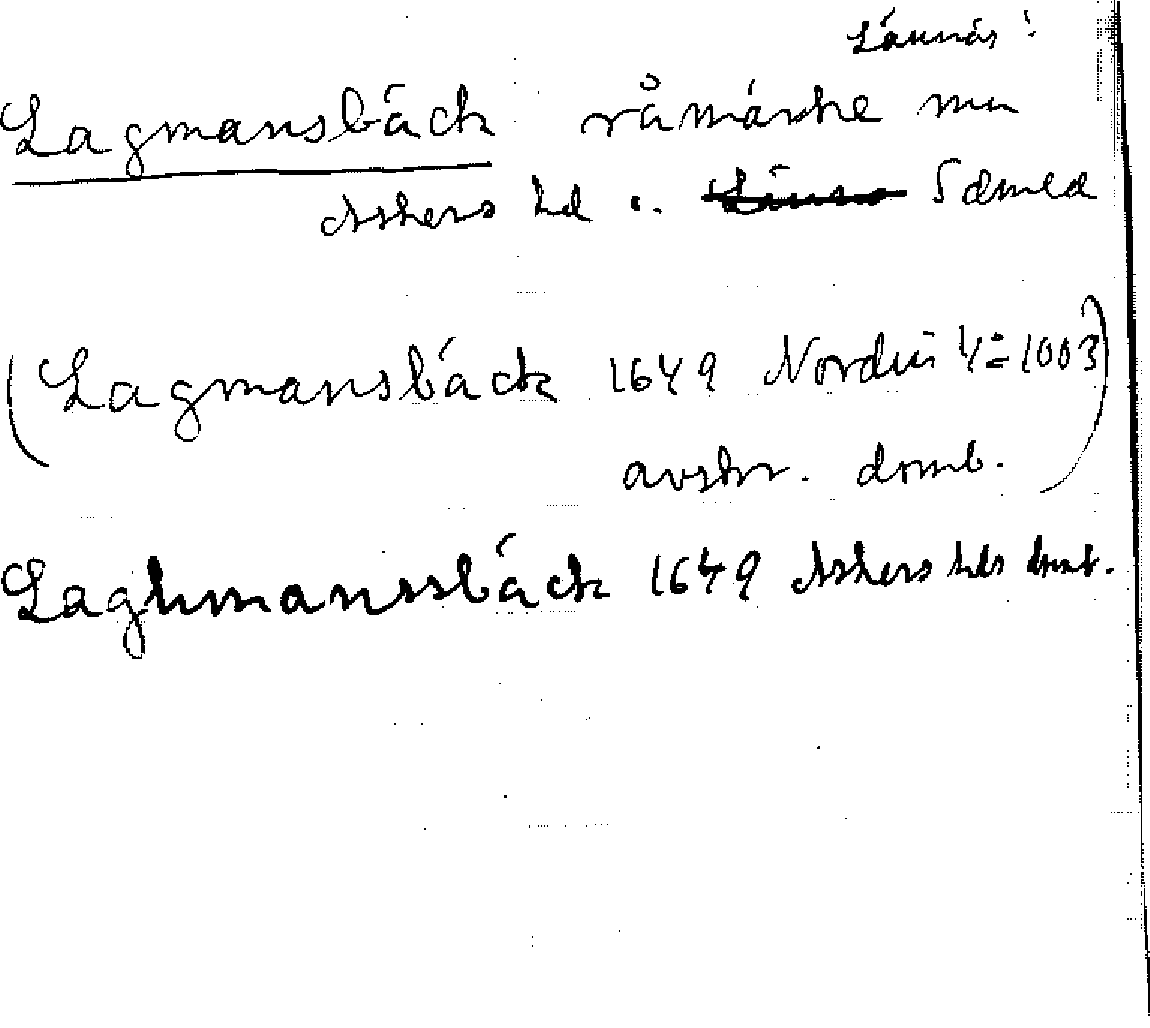 Lännäs!
Lagmansbäck råmärke mn
Askers hd i. Sdmld
(Lagmansbäck 1649 Nordin 4:o 1003)
avskr. domb.
Laghmanssbäck 1649 Askers hds domb.